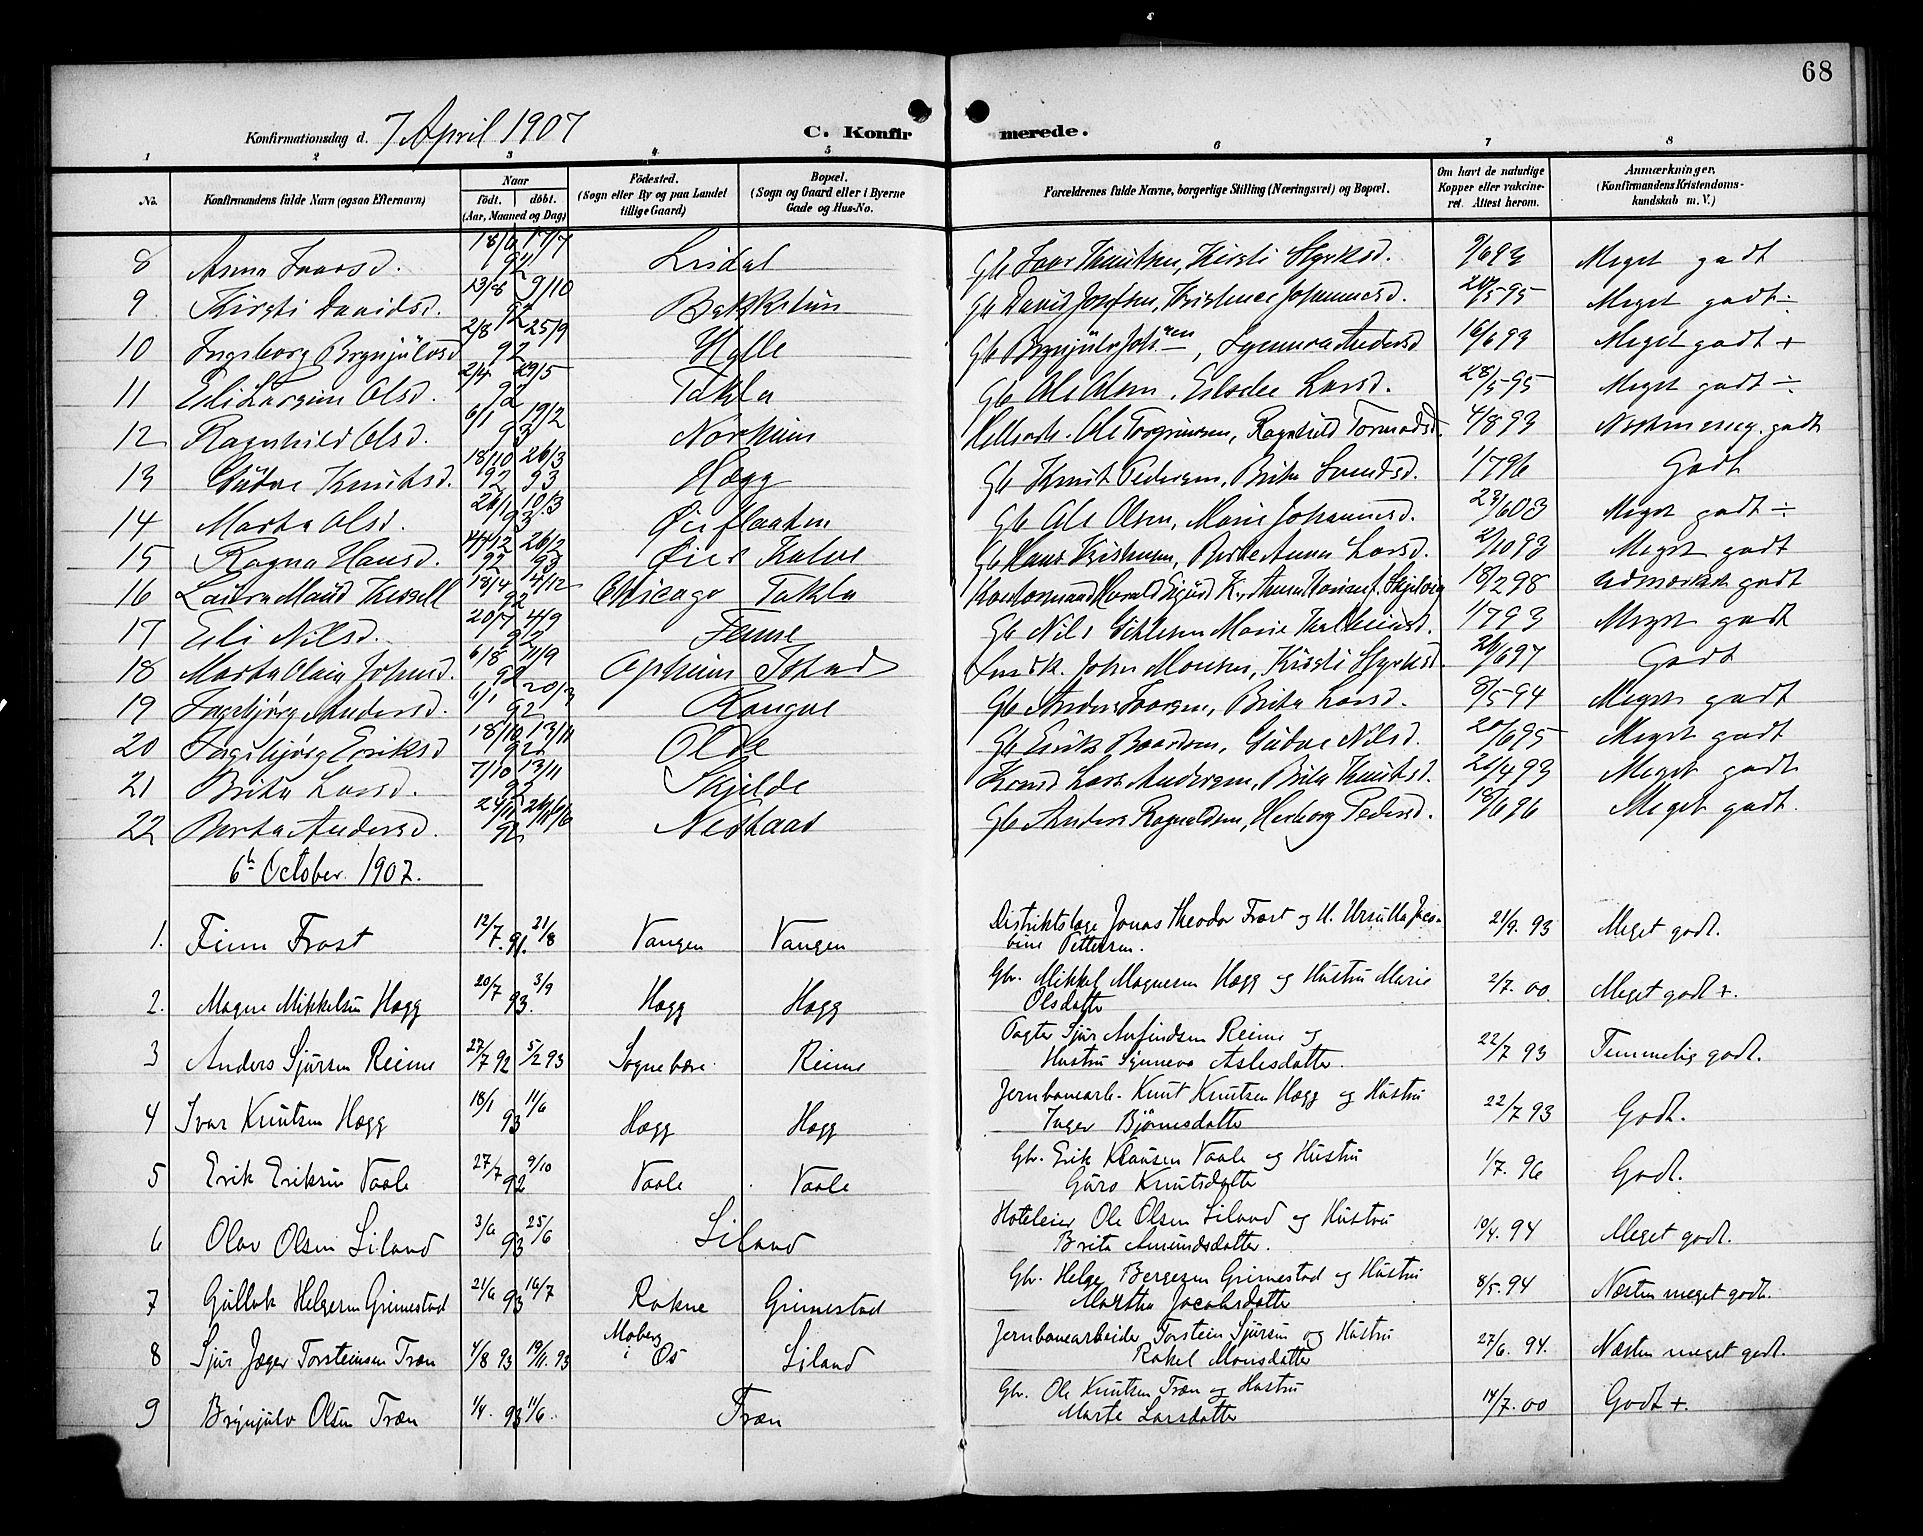 68
Konfirmationsdag d. 7 April 1907
C. Konfirmerede.
1 2 3 4 5 6 7 8
No. Konfirmandens fulde Navn (ogsaa Efternavn) Naar Födt. döbt. (Aar, Maaned og Dag) Födested. (Sogn eller By og paa Landet tillige Gaard) Bopæl. (Sogn og Gaard eller i Byerne Gade og Hus-No. Forældrenes fulde Navne, borgerlige Stilling (Næringsvei) og Bopæl. Om havt de naturlige Kopper eller vaccineret. Attest herom. Anmærkninger, (Konfirmandens Kristendomskundskab m. V.)
8 Anna Ivarsd. 18/6 17/7 92 Gb Ivar Knutsen, Kirsti Styrksd. 9/6 93 Meget godt
9 Kirsti Davidsd. 13/8 9/10 92 Bakketun Gb David Josefsen, Kristence Johannesd. 20/5 95 Meget godt ÷
10 Ingeborg Brynjülvsd 2/8 25/9 92 Hylle Gb Brynjülv Johsen, Synneva Andersd 16/6 93 Meget godt +
11 Eli Olsd. 2/4 29/5 92 Takla Gb Ole Olsen, Larsd. 28/5 95 Meget godt ÷
12 Ragnhild Olsd. 6/1 19/2 93 Norheim Ole Torgrimsen, Ragnhild Tormodsd. 4/8 93 Næsten meg. godt
13 Güdve Knütsd. 18/10 92 26/3 93 Hægg Gb Knut Pedersen, Brita Svendsd. 1/7 96 Godt
14 Marta Olsd. 26/1 10/3 93 Øieflaaten Gb Ole Olsen, Marie Johannesd. 23/6 03 Meget godt ÷
15 Ragna Hansd. 92 26/2 93 Gb Hans Kristensen, Anna Larsd. 2/10 93 Meget godt
16 Laura Maud 18/4 14/12 92 Chicago Takla Harald Sigurd K., 18/2 98 udmærket godt
17 Eli Nilsd. 20/7 4/9 92 Femne Gb Nils Marie 1/7 93 Meget godt
18 Marta Olava Johnsd. 6/8 11/9 92 Opheim John Monsen, Kirsti Styrksd. 26/6 97 Godt
19 Ingebjørg Andersd. 6/1 20/3 92 Rongve Gb Anders Ivarsen, Brita Larsd. 8/5 94 Meget godt
20 Ingebjørg Eriksd 18/10 13/11 92 Olde Gb Erik Baardsen, Güdve Nilsd. 20/6 95 Meget godt
21 Brita Larsd. 7/10 13/11 92 Skjelde Lars Andersen, Brita Knutsd. 21/4 93 Meget godt
22 Berta Andersd. 92 Nesthaas Gb Anders Ragnaldsen, Herborg Pedersd. 18/6 96 Meget godt.
6te October 1907.
1. Finn Frost 12/7. 91. 21/8 Vangen Vangen Distriktslæge Jonas Theodor Frost og H. Ursulla Jaco-
bine Pettersen. 21/9. 93 Meget godt.
2. Magne Mikkelsen Hægg 20/7 93. 3/9 Hægg Hægg Gbr. Mikkel Magnesen Hægg og Hustru Marie
Olsdatter 2/7. 00 Meget godt +.
3 Anders Sjursen Reime 27/7 92 5/2 93 Sognebære Reime Pagter Sjur Anfindsen Reime og
Hustru Synneva Aslesdatter. 22/7 93 Temmelig godt.
4 Ivar Knutsen Hægg 18/1 93 11/6 Hægg Hægg Jernbanearb. Knut Knutsen Hægg og Hustru
Inger Bjørnesdatter 22/7 93 Godt.
5 Erik Eriksen Vaale 27/7 92 9/10 Vaale Vaale Gbr. Erik Klausen Vaale og Hustru
Guro Knutsdatter 1/7. 96 Godt.
6 Olav Olsen Liland 3/6 93 25/6 Liland Hoteleier Ole Olsen Liland og Hustru
Brita Amundsdatter. 10/4. 94 Meget godt.
7 Gullak Helgesen Grimestad 21/6 93 16/7 Rokne Grimestad Gbr. Helge Bergesen Grimestad og Hustru
Martha Jacobsdatter 8/5. 94 Næsten meget godt.
8 Sjur Jæger Torsteinsen Træn 4/8 93 19/11. 93 Moberg i Os Liland Jernbanearbeider Torstein Sjursen og Hustru
Rakel Monsdatter 27/6. 94. Næsten meget godt.
9 Brynjulv Olsen Træn 1/4. 93 11/6. Træn Gbr. Ole Knutsen Træn og Hustru
Marte Larsdatter 14/7. 00 Godt +.